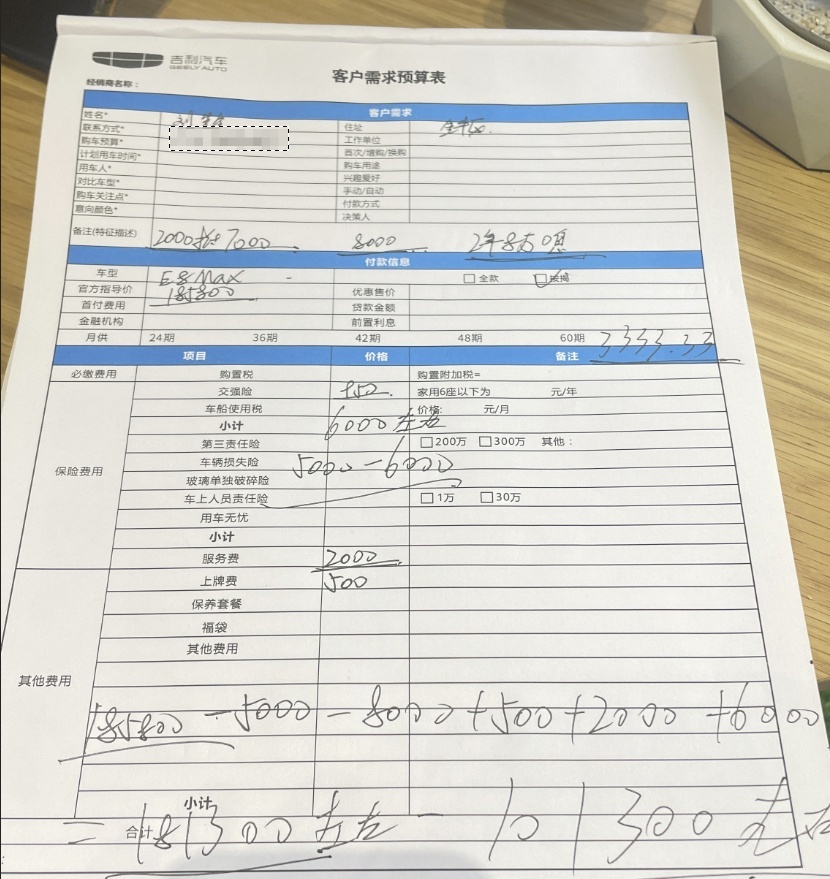 吉利汽车
GEELY AUTO
客户需求预算表
经销商名称：
客户需求
姓名* 刘
联系方式* 住址
购车预算* 工作单位
计划用车时间* 首次/增购/换购
用车人* 购车用途
对比车型* 兴趣爱好
购车关注点* 手动/自动
意向颜色* 付款方式
决策人
备注(特征描述) 2000抵7000 8000 2年8万0息
付款信息
车型 E8Max - 全款 按揭
官方指导价 185800 优惠售价
首付费用 贷款金额
金融机构 前置利息
月供 24期 36期 42期 48期 60期 3333.33
项目 价格 备注
必缴费用 购置税 购置附加税=
交强险 950 家用6座以下为 元/年
车船使用税 价格: 元/月
小计 6000左右
第三责任险 200万 300万 其他：
保险费用 车辆损失险 5000-6000
玻璃单独破碎险
车上人员责任险 1万 30万
用车无忧
小计
服务费 2000
上牌费 500
保养套餐
福袋
其他费用
其他费用
185800-5000-8000+500+2000+6000
小计
合计 =181300左右-101300左右